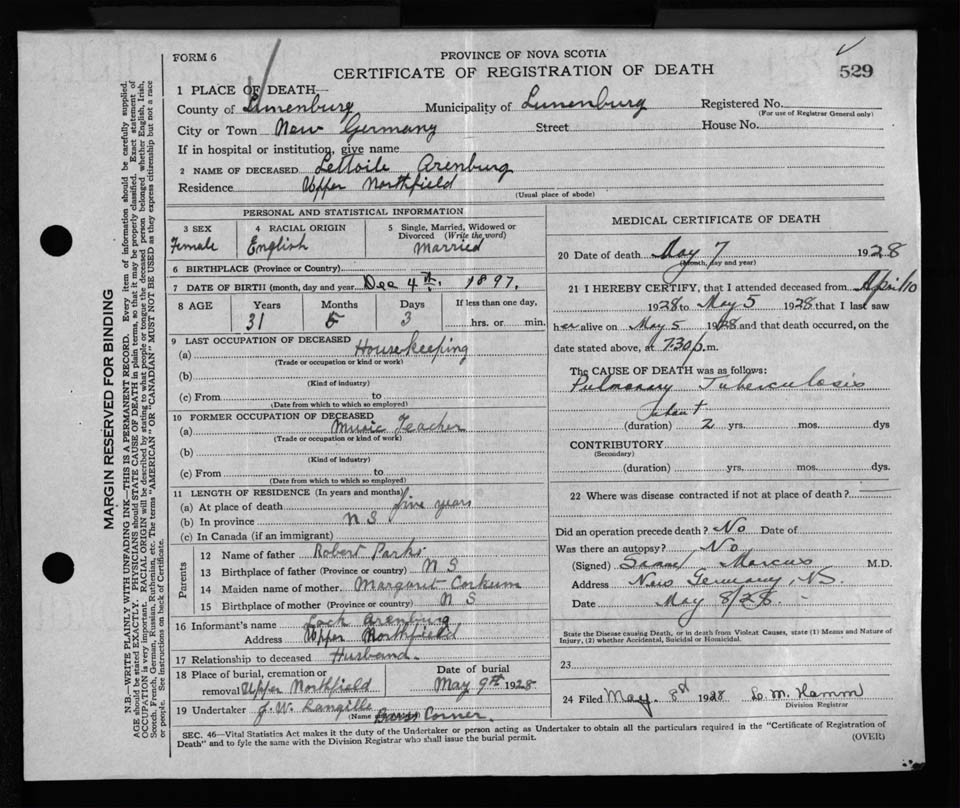 FORM 6
PROVINCE OF NOVA SCOTIA
CERTIFICATE OF REGISTRATION OF DEATH
529
1 PLACE OF DEATH—
County of Lunenburg Municipality of Lunenburg Registered No.
(For use of Registrar General only)
City or Town New Germany Street House No.
If in hospital or institution, give name
2 NAME OF DECEASED Arenburg
Residence Upper Northfield
(Usual place of abode)
PERSONAL AND STATISTICAL INFORMATION
3 SEX Female
4 RACIAL ORIGIN English
5 Single, Married, Widowed or Divorced (Write the word) Married
6 BIRTHPLACE (Province or Country)
7 DATE OF BIRTH (month, day and year) Dec 4th, 1897,
8 AGE Years Months Days If less than one day,
31 5 3 hrs. or min.
9 LAST OCCUPATION OF DECEASED
(a) Housekeeping
(Trade or occupation or kind of work)
(b)
(Kind of industry)
(c) From to
(Date from which to which so employed)
10 FORMER OCCUPATION OF DECEASED
(a) Music Teacher
(Trade or occupation or kind of work)
(b)
(Kind of industry)
(c) From to
(Date from which to which employed)
11 LENGTH OF RESIDENCE (In years and months)
(a) At place of death five years
(b) In province N.S
(c) In Canada (if an immigrant)
Parents
12 Name of father Robert Parks
13 Birthplace of father (Province or country) N S
14 Maiden name of mother Margaret Corkum
15 Birthplace of mother (Province or country) N S
16 Informant's name Lock Arenburg
Address Upper Northfield
17 Relationship to deceased Husband.
18 Place of burial, cremation or removal Upper Northfield
Date of burial May 9th 1928
19 Undertaker J. W. Langille
(Name Corner.
MEDICAL CERTIFICATE OF DEATH
20 Date of death May 7 1928
(Month, day and year)
21 I HEREBY CERTIFY, that I attended deceased from April 10
1928 to May 5 1928 that I last saw
her alive on May 5 1928 and that death occurred, on the
date stated above, at 7.30 p.m.
The CAUSE OF DEATH was as follows:
Pulmonary Tuberculosis
(duration) 2 yrs. mos. dys
CONTRIBUTORY
(Secondary)
(duration) yrs. mos. dys.
22 Where was disease contracted if not at place of death?
Did an operation precede death? No Date of
Was there an autopsy? No
(Signed) Marcus M.D.
Address New Germany, N.S.
Date May 8/28.
State the Disease causing Death, or in death from Violent Causes, state (1) Means and Nature of
Injury, (2) whether Accidental, Suicidal or Homicidal.
23
24 Filed May 8th 1928 L. M. Hamm
Division Registrar
SEC. 46—Vital Statistics Act makes it the duty of the Undertaker or person acting as Undertaker to obtain all the particulars required in the "Certificate of Registration of
Death" and to fyle the same with the Division Registrar who shall issue the burial permit.
(OVER)
MARGIN RESERVED FOR BINDING
N.B.—WRITE PLAINLY WITH UNFADING INK—THIS IS A PERMANENT RECORD. Every item of information should be carefully supplied.
AGE should be stated EXACTLY. PHYSICIANS should STATE CAUSE OF DEATH in plain terms, so that it may be properly classified. Exact statement of
OCCUPATION is very important. RACIAL ORIGIN will be described by stating to what people or tongue the deceased person belonged whether English, Irish,
Scotch, French, German, Russian, Ruthenian, etc. The terms "AMERICAN" OR "CANADIAN" MUST NOT BE USED as they express citizenship but not a race
or people. See instructions on back of Certificate.